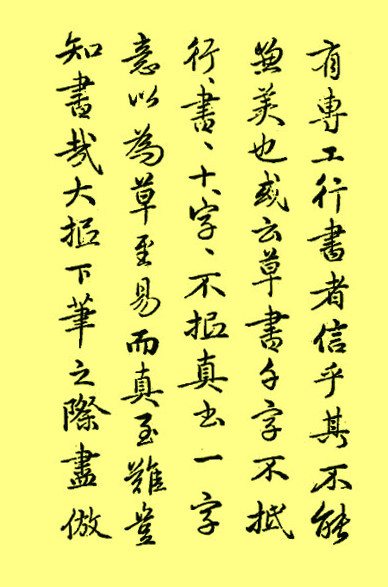 有專工行書者信乎其不能
兼美也或云草書千字不抵
行、書、十、字、不抵真書一字
意以為草至易而真至難豈
知書哉大抵下筆之際盡倣